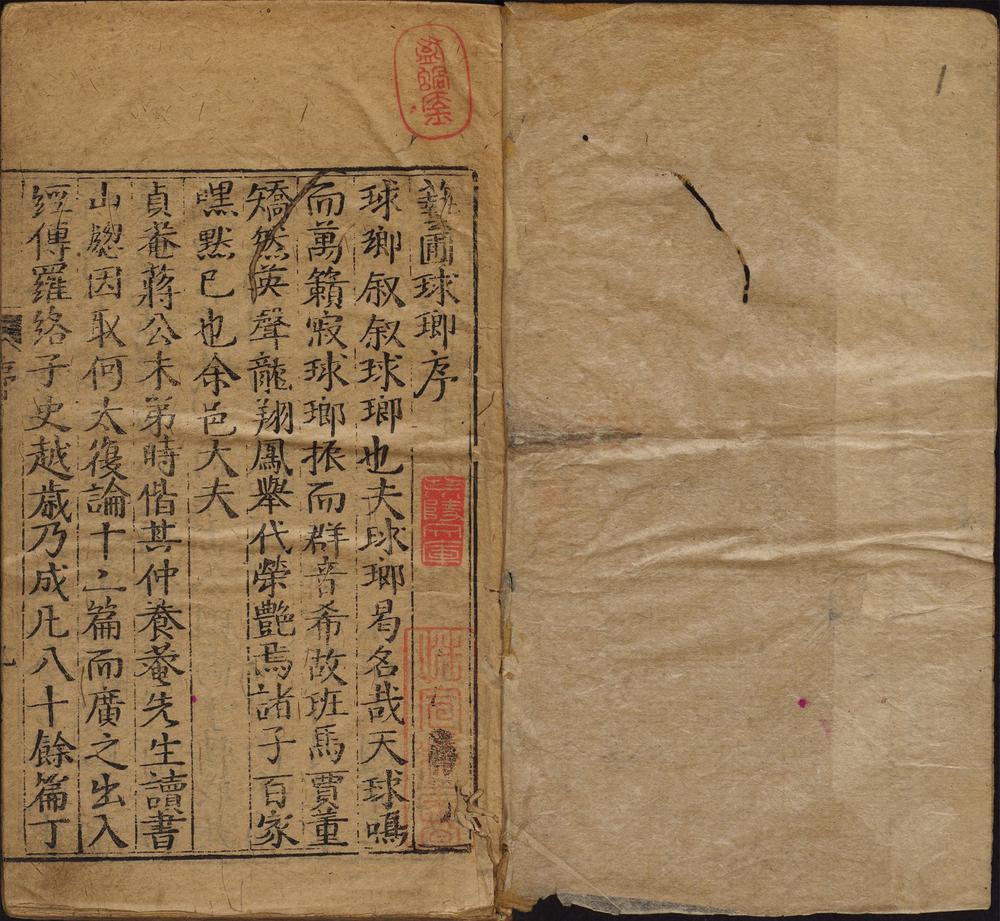 藝圃球瑯序
球瑯叙叙球瑯也夫球瑯曷名哉天球鳴
而萬籟寂球瑯振而群音希故班馬賈董
矯然英聲龍翔鳳舉代榮艷焉諸子百家
嘿默已也余邑大夫
貞菴蔣公未第時偕其仲養菴先生讀書
山隠因取何太復論十二篇而廣之出入
經傳羅絡子史越歲乃成凡八十餘篇丁
序
1